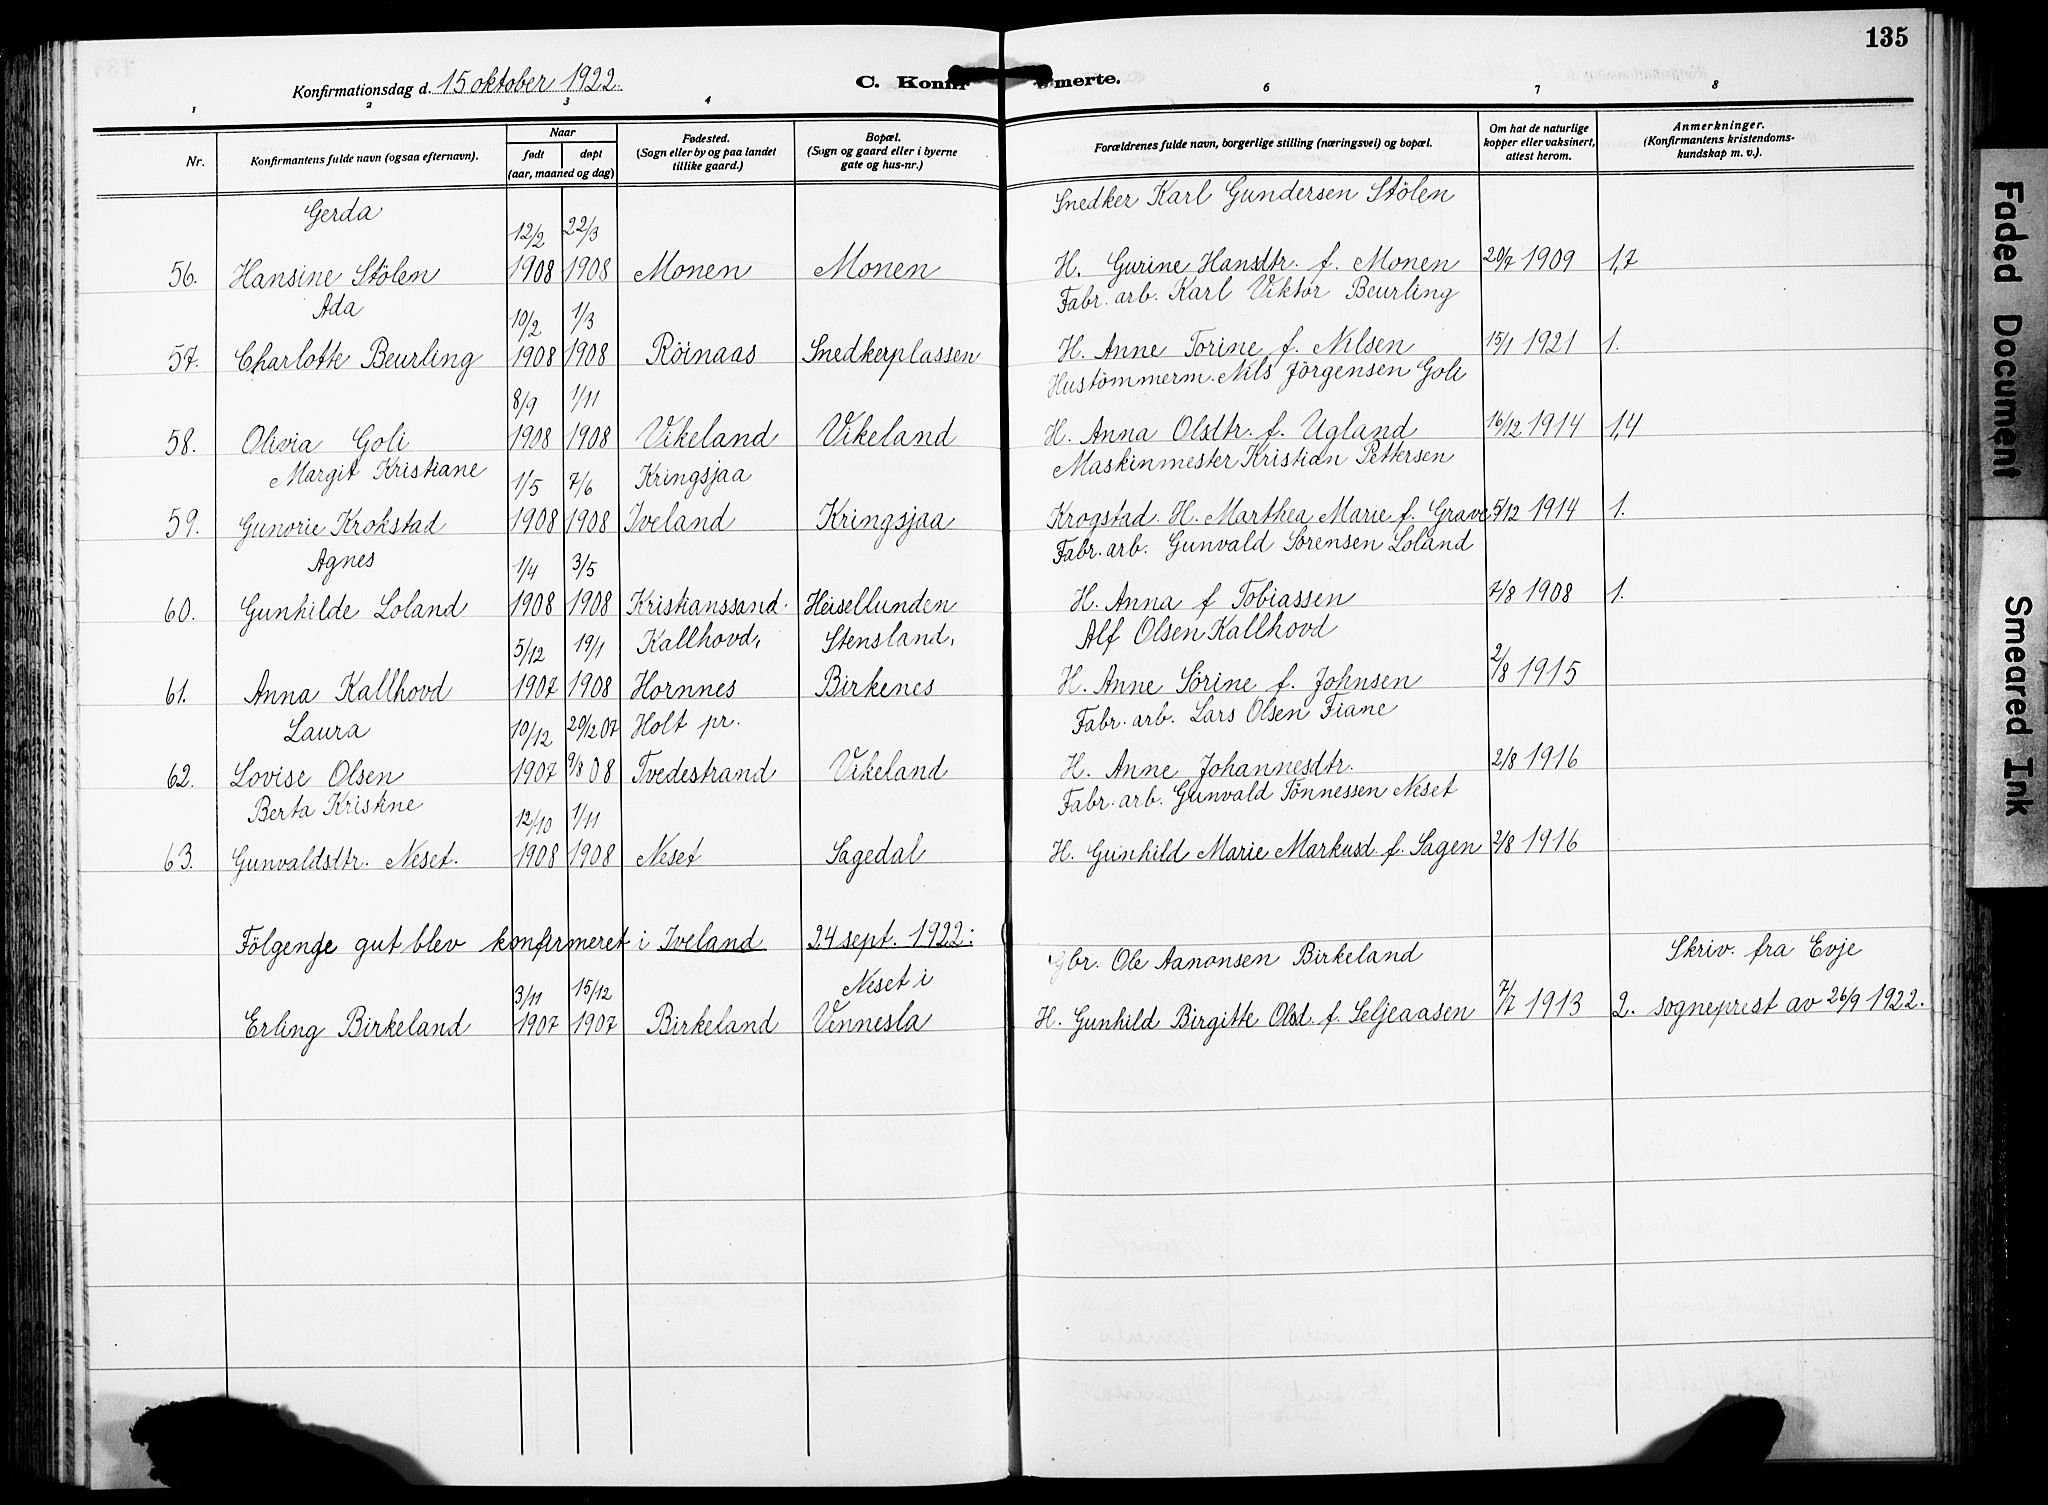 135
Konfirmationsdag d. 15 oktober 1922.
C. Konfir merte.
1 2 3 4 6 7 8
Nr.
Konfirmantens fulde navn (ogsaa efternavn).
Naar
født døpt
(aar, maaned og dag)
Fødested.
(Sogn eller by og paa landet
tillike gaard.)
Bopæl.
(Sogn og gaard eller i byerne
gate og hus-nr.)
Forældrenes fulde navn, borgerlige stilling (næringsvei) og bopæl.
Om hat de naturlige
kopper eller vaksinert,
attest herom.
Anmerkninger.
(Konfirmantens kristendoms-
kundskap m. v.).
Gerda 12/2 22/3 Snedker Karl Gundersen Stölen
56. Hansine Stölen 1908 1908 Monen Monen H. Gurine Hansdtr. f. Monen 20/7 1909 1,7
Ada 10/2 1/3 Fabr. arb. Karl Viktor Beurling
57. Charlotte Beurling 1908 1908 Röinaas Snedkerplassen H. Anne Torine f. Nilsen 15/1 1921 1.
8/9 1/11 Hustömmerm. Nils Jörgensen Goli
58. Olivia Goli 1908 1908 Vikeland Vikeland H. Anna Olsdtr. f. Ugland 16/12 1914 1,4
Margit Kristiane 1/5 7/6 Kringsjaa Maskinmester Kristian Pettersen
59. Gunorie Krokstad 1908 1908 Iveland Kringsjaa Krogstad. H. Marthea Marie f. Grave 5/12 1914 1.
Agnes 1/4 3/5 Fabr. arb. Gunvald Sörensen Loland
60. Gunhilde Loland 1908 1908 Kristianssand. Heisellunden H. Anna f Tobiassen 7/8 1908 1.
5/12 19/1 Kallhovd, Stensland, Alf Olsen Kallhovd
61. Anna Kallhovd 1907 1908 Hornnes Birkenes H. Anne Sörine f. Johnsen 2/8 1915
Laura 10/12 29/12 07 Holt pr. Fabr. arb. Lars Olsen Fiane
62. Lovise Olsen 1907 9/8 08 Tvedestrand Vikeland H. Anne Johannesdtr. 2/8 1916
Berta Kristine 12/10 1/11 Fabr. arb. Gunvald Tönnessen Neset
63. Gunvaldsdtr. Neset. 1908 1908 Neset Sagedal H. Gunhild Marie Markusd. f. Sagen 2/8 1916
Fölgende gut blev konfirmeret i Iveland 24 sept. 1922:
3/11 15/12 Neset i Gbr. Ole Aanonsen Birkeland Skriv. fra Evje
Erling Birkeland 1907 1907 Birkeland Vennesla H. Gunhild Birgitte Olsd. f. Seljeaasen 7/7 1913 2. sogneprest av 26/9 1922.
Faded Document
Smeared Ink